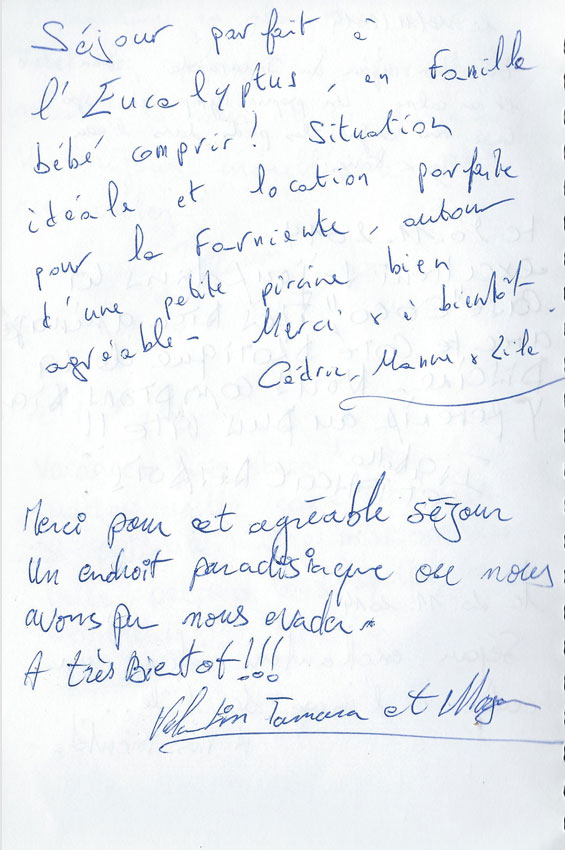 Séjour parfait à
l'Eucalyptus, en famille
bébé compris! Situation
idéale et location parfaite
pour la Farniente, autour
d'une petite piscine bien
agréable - Merci & à bientôt
Cédric, Manue &
Merci pour cet agréable séjour
Un endroit paradisiaque ou nous
avons pu nous evader.
A très Bientot!!!
Valentin Tamara et